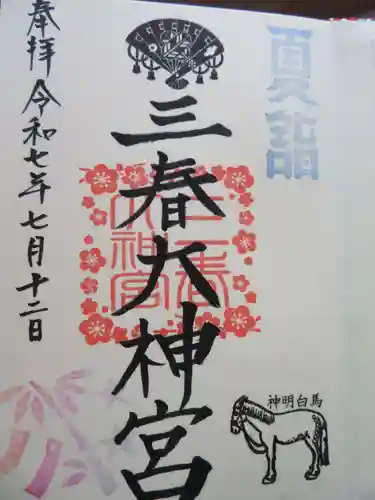 夏詣
三春大神宮
奉拝
令和七年七月十二日
三春
大神宮
神明白馬